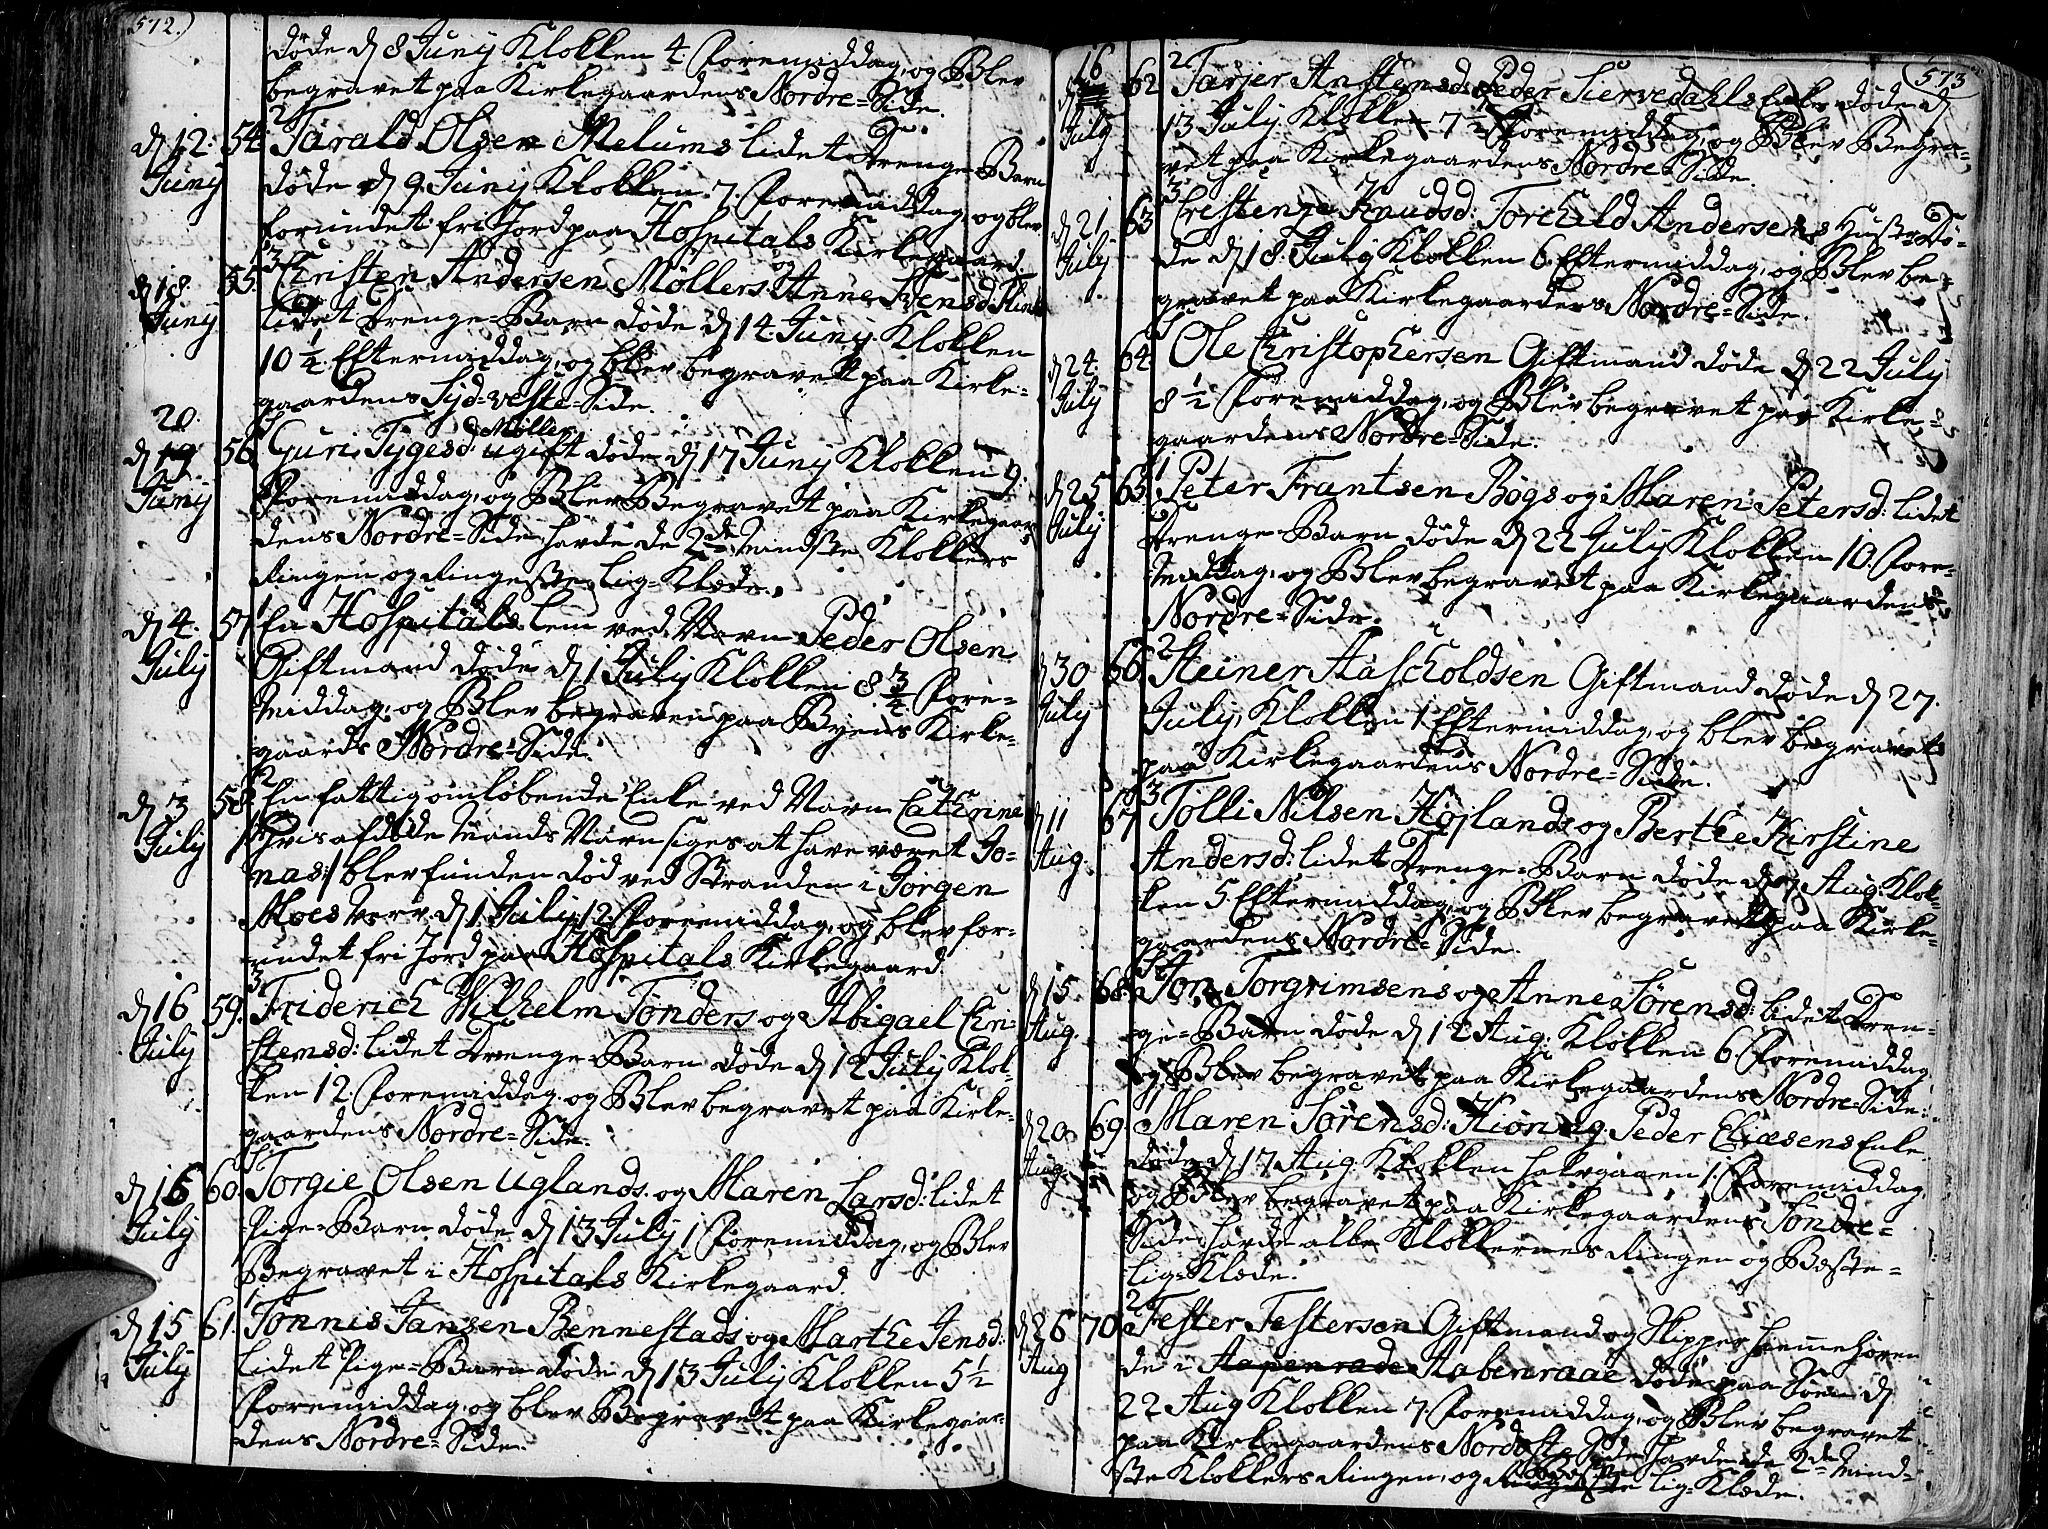 572.
døde d 8 Junij Klokken 4 Foremiddag, og Blev
begravet paa Kirkegaardens Nordre=Side.
2
d 12. 54. Tarald Olsen Melums lidet Drenge=Barn
Junij døde d 9 Junij Klokken 7. Foremiddag, og blev
forundet fri Jord paa Hospitals Kirkegaard
3
d 18. 55. Christen Andersen Møllers og Anne Svensd.
Junij lidet Drenge=Barn døde d 14 Junij Klokken
10 1/4. Eftermiddag, og blev begravet paa Kirke=
gaardens Syd=veste=Side.
20.
d 19 56. Guri Tygesd: Møller ugift døde d 17 Junij Klokken 9.
Junij Foremiddag, og Blev Begravet paa Kirkegaar=
dens Nordre=Side, havde de 2de Mindste Klokkers
Ringen og Ringeste Lig=Klæde.
1
d 4. 57. En Hospitals Lem ved Navn Peder Olsen
July Giftmand døde d 1 July Klokken 8 3/4 Fore=
middag, og Blev begraven paa Byens Kirke=
gaards Nordre=Side.
2
d 3 58. En fattig omløbende Enke ved Navn Cathrine
July /: hvis afdøde Mands Navn siges at have været Jo=
nas :/ blev funden død ved Stranden i Jørgen
Moes Verv d 1 July 12. Foremiddag, og blev for=
undet fri Jord paa Hospitals Kirkegaard.
3
d 16 59. Friderich Wilhelm Tønders og Abigael Chri=
July stensd: lidet Drenge=Barn døde d 12 July Klok=
ken 12. Foremiddag og Blev begravet paa Kirke=
gaardens Nordre=Side.
d 16 60. Torgie Olsen Uglands. og Maren Larsd: lidet
July Pige=Barn døde d 13 July 1 Foremiddag, og Blev
Begravet i Hospitals Kirkegaard.
1
d 15 61. Tønnis Jansen Bennestads og Marthe Jensd:
July lidet Pige=Barn døde d 13 July Klokken 5 1/2
Foremiddag, og blev Begravet paa Kirkegaar=
dens Nordre=Side.
573
16 2
d 62 Tarjer Anstensd: Peder Siervedahls Enke døde d
July 13 July Klokken 7 1/2 Foremiddag, og Blev Begra=
vet paa Kirkegaardens Nordre=Side.
3
d 21 63 Crestenze Knudsd: Torchild Andersens Hustr. Dø=
July de d 18. July Klokken 6. Eftermiddag, og Blev be=
gravet paa Kirkegaardens Nordre=Side.
d 24. 64. Ole Christophersen Giftmand døde d 22 July
July 8 1/2 Foremiddag, og Blev begravet paa Kirke=
gaardens Nordre=Side.
1
d 25 65. Peter Frantsen Bøgs og Maren Petersd: lidet
July Drenge=Barn døde d 22 July Klokken 10. Fore=
middag, og Blev begravet paa Kirkegaardens
Nordre=Side.
2
d 30 66. Steiner Aascholdsen Giftmand døde d 27.
July July, Klokken 1. Eftermiddag, og blev begravet
paa Kirkegaardens Nordre=Side.
3
d 11 67. Tolli Nilsen Højlands og Berthe Kirstine
Aug. Andersd: lidet Drenge=Barn døde d 7 Aug. Klok=
ken 5. Eftermiddag, og Blev begravet paa Kirke=
gaardens Nordre=Side.
d 15. 68. Jon Torgrimsens og Anne Sørensd: lidet Dren=
Aug. ge=Barn døde d 12 Aug: Klokken 6. Foremiddag,
og Blev begravet paa Kirkegaardens Nordre=Side.
1
d 20. 69. Maren Sørensd: Kiønig. Peder Eliæsens Enke
Aug. døde d 17 Aug. Klokken halvgaaen 1. Foremiddag,
og Blev begravet paa Kirkegaardens Søndre=
Side, havde alle Klokkernes Ringen og Beste=
Lig=Klæde.
2
d 26 70. Fester Festersen Giftmand og Skipper hiemehøren
Aug de i Aapenrade Aabenraae døde paa Søen d
22 Aug Klokken 7. Foremiddag, og Blev begravet
paa Kirkegaardens Nordoste Side, havde de 2de Mind=
ste Klokkers Ringen, og Lig=Klæde.